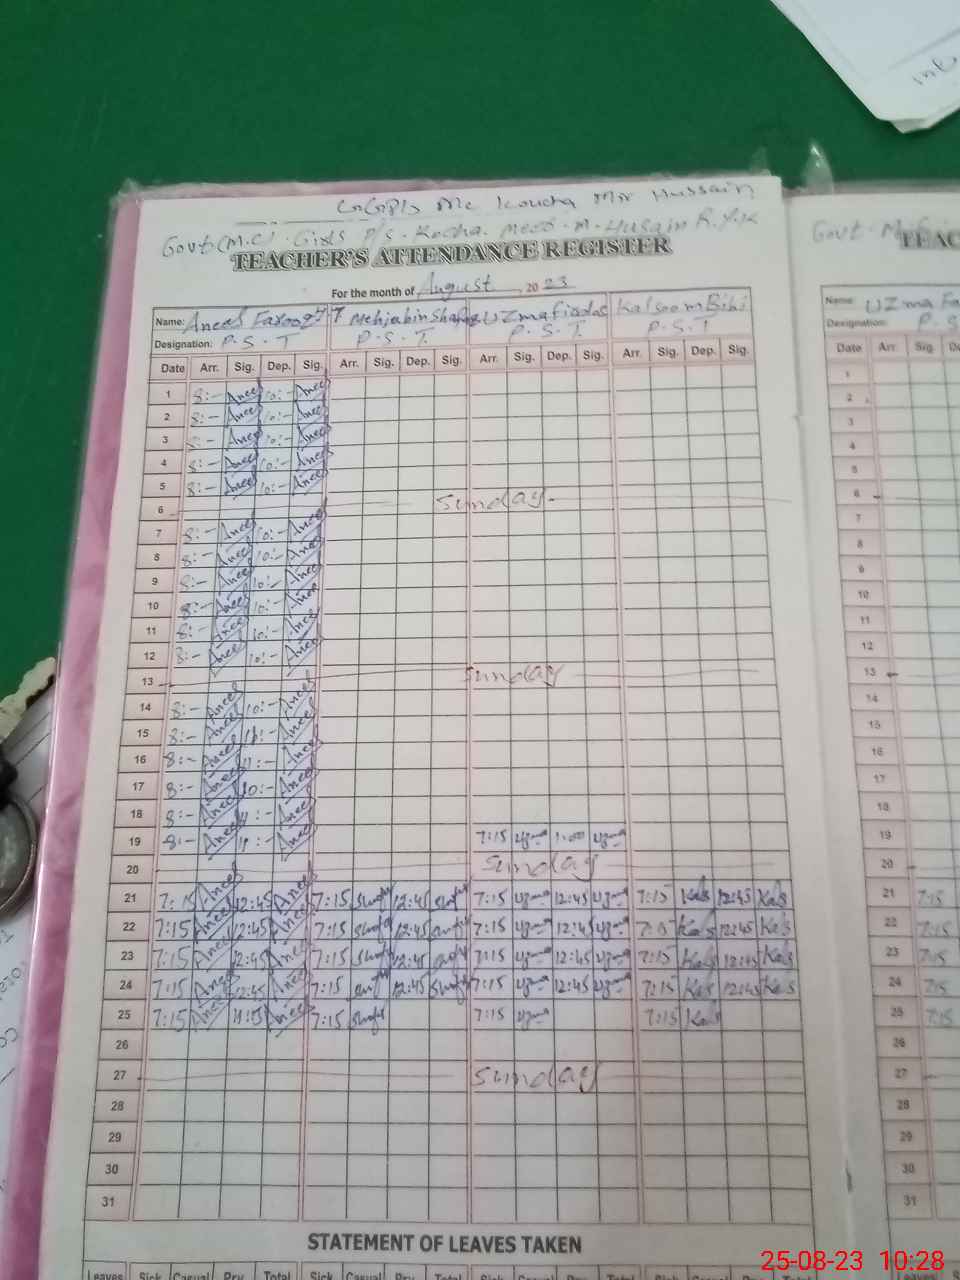 GGPS Mc Koucha Mir Hussain
Govt (M.C) Girls P/S. Kocha. Meer. M. Husain R.Y.K
Govt.
TEACHER'S ATTENDANCE REGISTER
For the month of August, 2023
Name: Aneel Farooq Mehjabin Uzma Firdos Kalsoom Bibi
Designation: P.S.T P.S.T. P.S.T. P.S.T
Date Arr. Sig. Dep. Sig. Arr. Sig. Dep. Sig. Arr. Sig. Dep. Sig. Arr. Sig. Dep. Sig.
1 8:- Aneel 10:- Aneel
2 8:- Aneel 10:- Aneel
3 8:- Aneel 10:- Aneel
4 8:- Aneel 10:- Aneel
5 8:- Aneel 10:- Aneel
6 Sunday.
7 8:- Aneel 10:- Aneel
8 8:- Aneel 10:- Aneel
9 8:- Aneel 10:- Aneel
10 8:- Aneel 10:- Aneel
11 8:- Aneel 10:- Aneel
12 8:- Aneel 10:- Aneel
13 Sunday
14 8:- Aneel 10:- Aneel
15 8:- Aneel Aneel
16 8:- Aneel 11:- Aneel
17 8:- Aneel 10:- Aneel
18 8:- Aneel 11:- Aneel
19 8:- Aneel 11:- Aneel 7:15 uzma 1:00 uzma
20 Sunday
21 7:15 Aneel 12:45 Aneel 7:15 12:45 7:15 uzma 12:45 uzma 7:15 Kals 12:45 Kals
22 7:15 Aneel 12:45 Aneel 7:15 12:45 7:15 uzma 12:45 uzma 7:15 Kals 12:45 Kals
23 7:15 Aneel 12:45 Aneel 7:15 12:45 7:15 uzma 12:45 uzma 7:15 Kals 12:45 Kals
24 7:15 Aneel 12:45 Aneel 7:15 12:45 7:15 uzma 12:45 uzma 7:15 Kals 12:45 Kals
25 7:15 Aneel Aneel 7:15 7:15 uzma 7:15 Kals
26
27 Sunday
28
29
30
31
STATEMENT OF LEAVES TAKEN
Leaves Sick Casual Prv. Total Sick Casual Prv. Total Sick Casual Prv. Total Sick Casual Prv. Total
Name: Uzma
Designation: P.S
Date Arr. Sig.
1
2
3
4
5
6
7
8
9
10
11
12
13
14
15
16
17
18
19
20
21 7:15
22 7:15
23 7:15
24 7:15
25 7:15
26
27
28
29
30
31
25-08-23 10:28